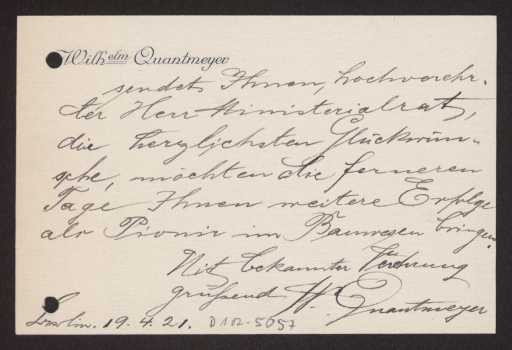 Wilhelm Quantmeyer
sendet Ihnen, hochverehr-
ter Herr Ministerialrat,
die herzlichsten Glückwün-
sche, möchten die ferneren
Tage Ihnen weitere Erfolge
als Pionir im Bauwesen bringen.
Mit bekannter Verehrung
grüßend W. Quantmeyer
Berlin. 19.4.21. D102-5057